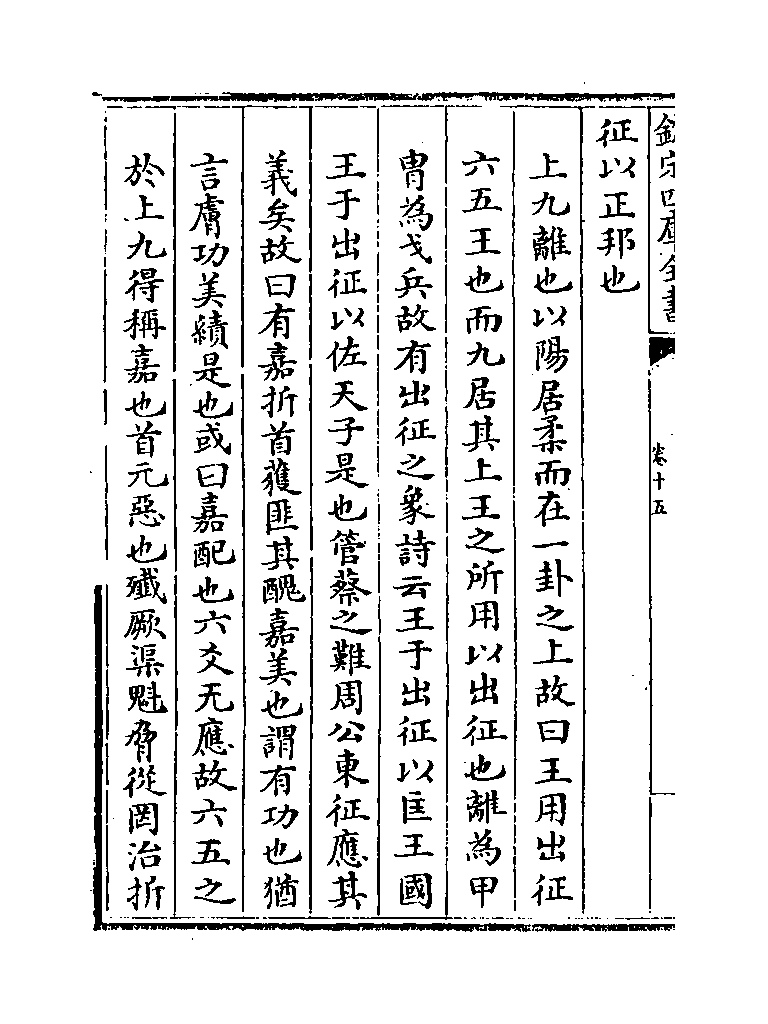 欽定四庫全書
卷十五
征以正邦也
上九離也以陽居柔而在一卦之上故曰王用出征
六五王也而九居其上王之所用以出征也離為甲
胄為戈兵故有出征之象詩云王于出征以匡王國
王于出征以佐天子是也管蔡之難周公東征應其
義矣故曰有嘉折首獲匪其醜嘉美也謂有功也猶
言膚功美績是也或曰嘉配也六爻无應故六五之
於上九得稱嘉也首元惡也殲厥渠魁脅從罔治折